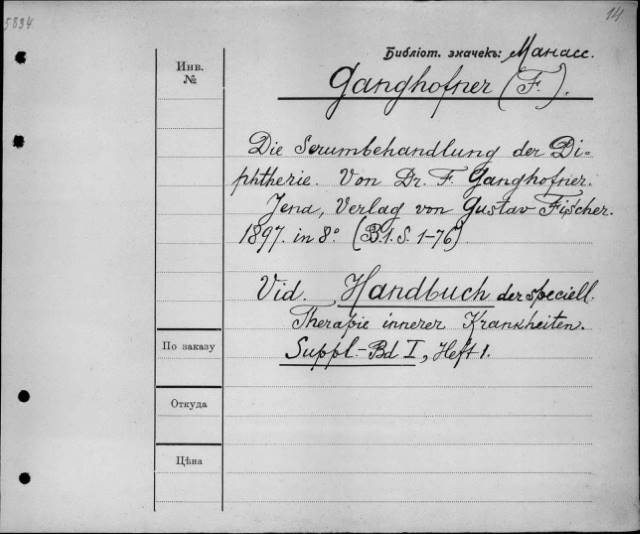 5834
14
Библіот. значекъ: Манасс.
Инв.
№
Ganghofner (F.).
Die Serumbehandlung der Di-
phtherie. Von Dr. F. Ganghofner.
Jena, Verlag von Gustav Fischer.
1897. in 8°. (B.1. S. 1-76)
Vid. Handbuch der speciell.
Therapie innerer Krankheiten.
Suppl.-Bd I, Heft 1.
По заказу
Откуда
Цѣна